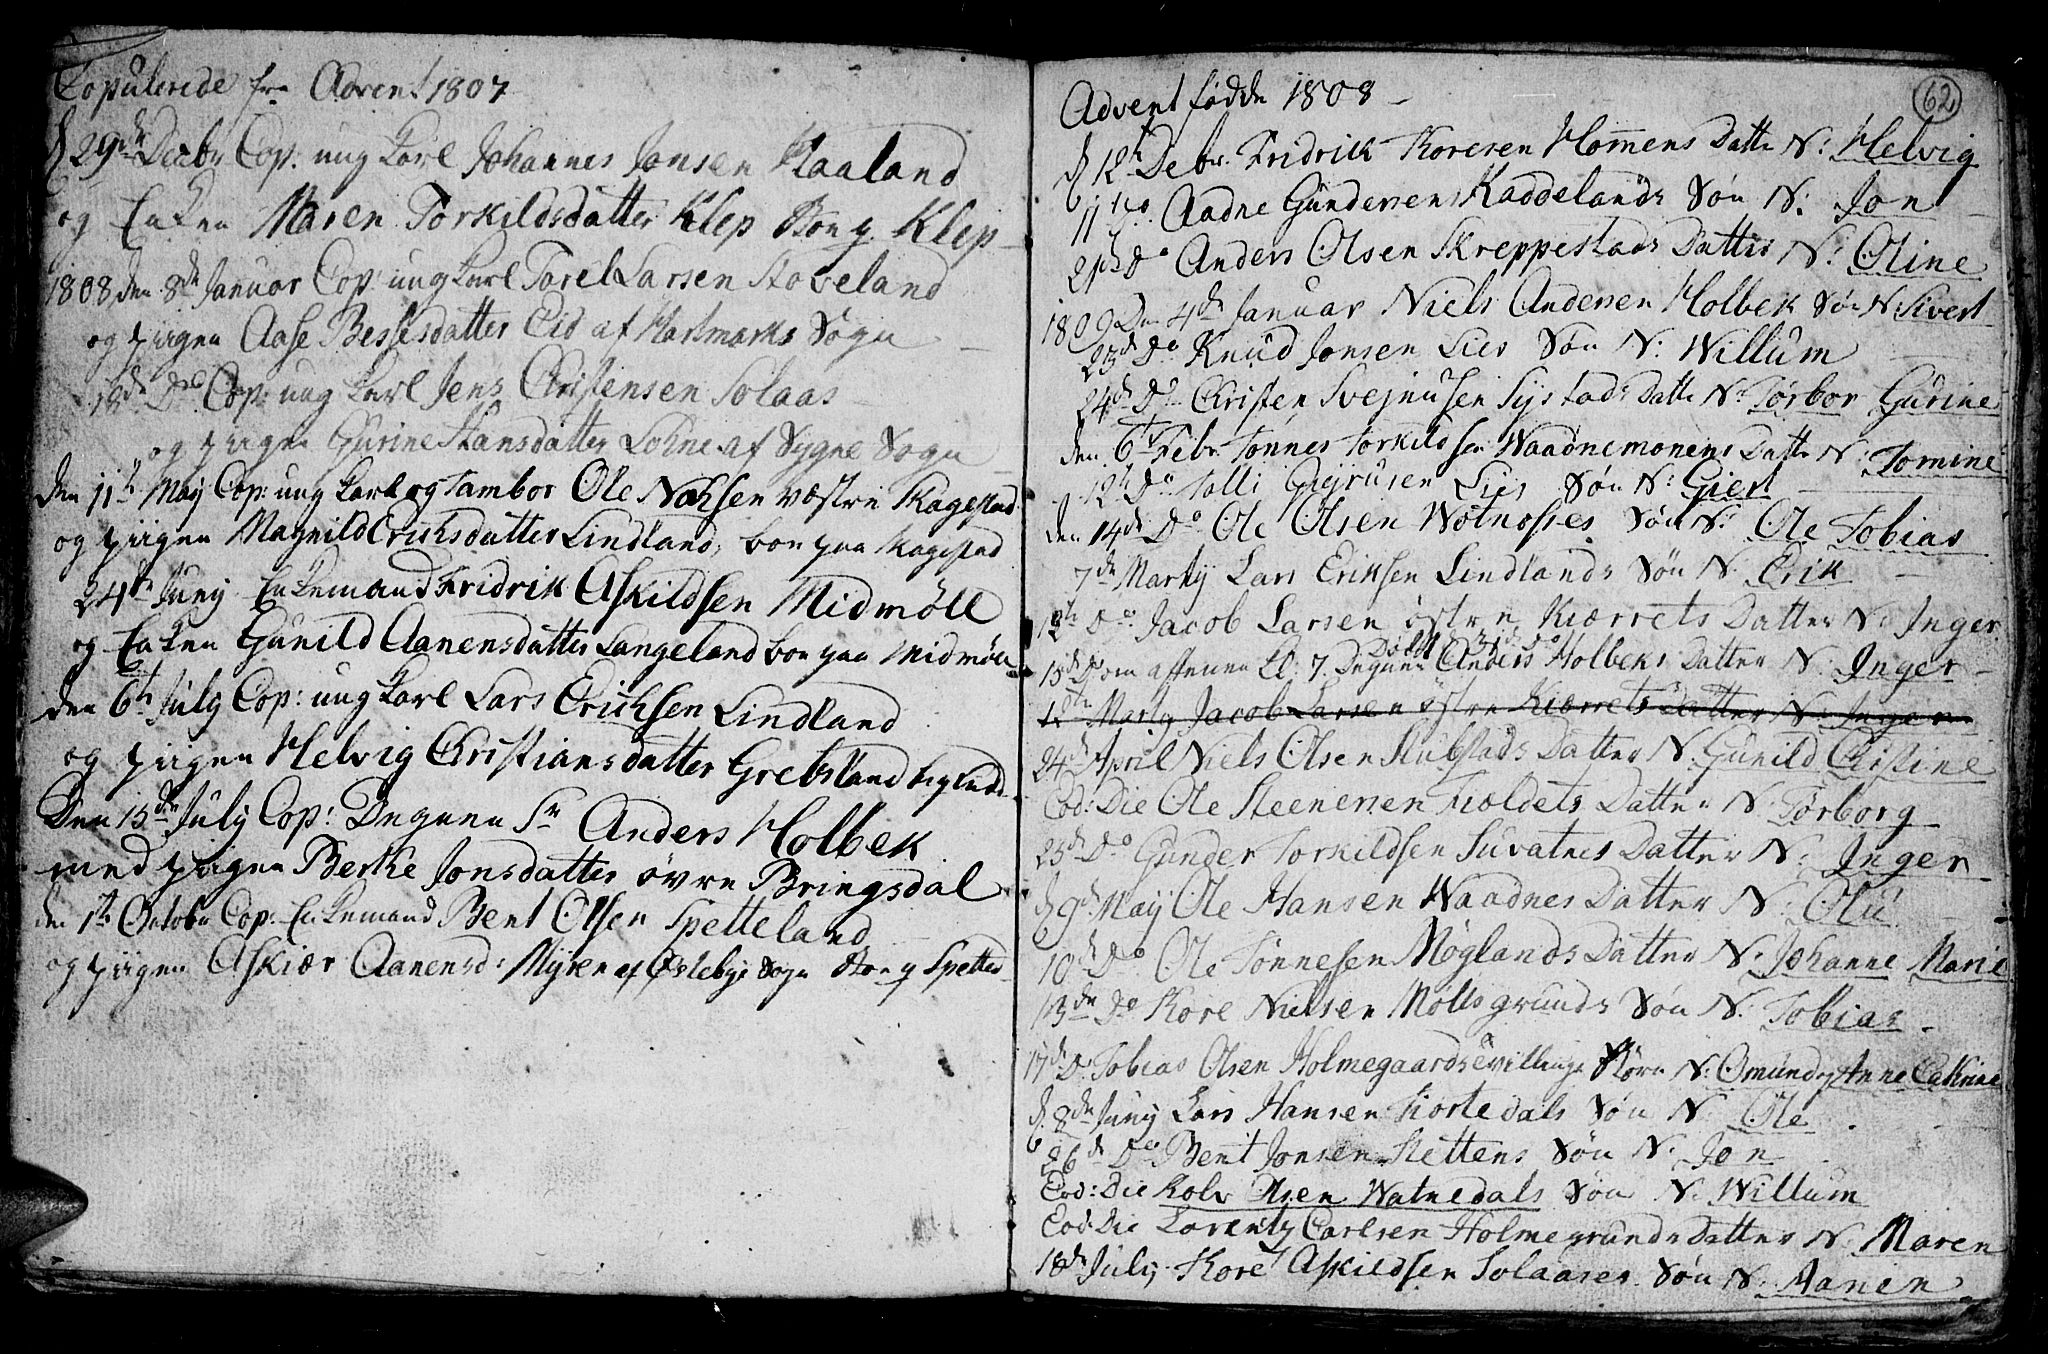 Copulerede fra Advent 1807
d 29de Decbr Cop: ung Karl Johannes Jonsen Haaland
og Enken Maren Torkildsdatter Klep Bor p. Klep
1808 den 8de Januar Cop: ung Karl Torel Larsen Hoveland
og piigen Aase Bessesdatter Eid af Halsmarks Sogn
18de Do Cop: ung Karl Jens Christensen Solaas
og piigen Gurine Hansdatter Lohne af Sygne Sogn
den 11te Maij Cop: ung Karl og Tambor Ole Nahsen væstre Skagestad
og piigen Magnild Erichsdatter Lindland, boe paa Skagestad
24de Junij Enkemand Fridrik Askildsen Midmöll
og Enken Gunild Aanensdatter Langeland boe paa Midmöll
den 6te Julij Cop: ung Karl Lars Erichsen Lindland
og piigen Helvig Christiansdatter Grebsland
Den 15de Julij Cop: Degnen Sr Anders Holbek
med piigen Berthe Jonsdatter øvre Bringsdal
den 1te Octobr Cop: Enkemand Bent Olsen Spetteland
og piigen Askiær Aanensd: Myren af Oslebye Sogn Bor p Spettel
62
Advent fødde 1808
d 12te Debr. Fridrik Koresen Homens Datter N: Helvig
11te Do. Aadne Gundersens Kaddelands Søn N: Jon
21de Do Anders Olsen Skreppestads Datter N: Oline
1809 Den 4de Januar Niels Andersen Holbek Søn N: Sivert
23de Do Knud Jonsen Lies Søn N: Willum
24de Do Christen Svejnusen Systads Datter N: Torbor Gurine
den 6te Febr Tønnes Torkildsen Waadnemonens Datter N: Tomine
12te Do Tolli Giejrusen Lies Søn N: Giert
den 14de Do Ole Olsen Wotnosses Søn N: Ole Tobias
7de Martij Lars Eriksen Lindlands Søn N: Erik
12te Do Jacob Larsen østre Kiærrets Datter N: Inger
Døbt 31 do
15de Do om aftenen Kl: 7. Degnen Anders Holbeks Datter N: Inger
12te Martij Jacob Larsen østre Kiærrets Datter N: Inger
24de April Niels Olsen Stubstads Datter N: Gunild Christine
Eod: Die Ole Steenersen Fioldets Datter N: Torborg
25de Do Gunder Torkildsen Suvatnes Datter N: Inger
d 9de Maij Ole Hansen Waadnes Datter N: Olu
10de Do Ole Tønnesen Møglands Datter N: Johanne Marie
13de Do Kore Nielsen Møllsgrunds Søn N: Tobias
17de Do Tobias Olsen Holmegaards tvillinge Børn N: Omund og Anne Cathrine
d. 8de Junij Lars Hansen Kortedals Søn N: Ole
26de Do Bent Jonsen Slettens Søn N: Jon
Eod: Die Rolv Olsen Watnedals Søn N: Willum
Eod: Die Lorentz Carlsen Holmegrunds Datter N: Maren
18de Julij Kore Askildsen Solaases Søn N: Aanen